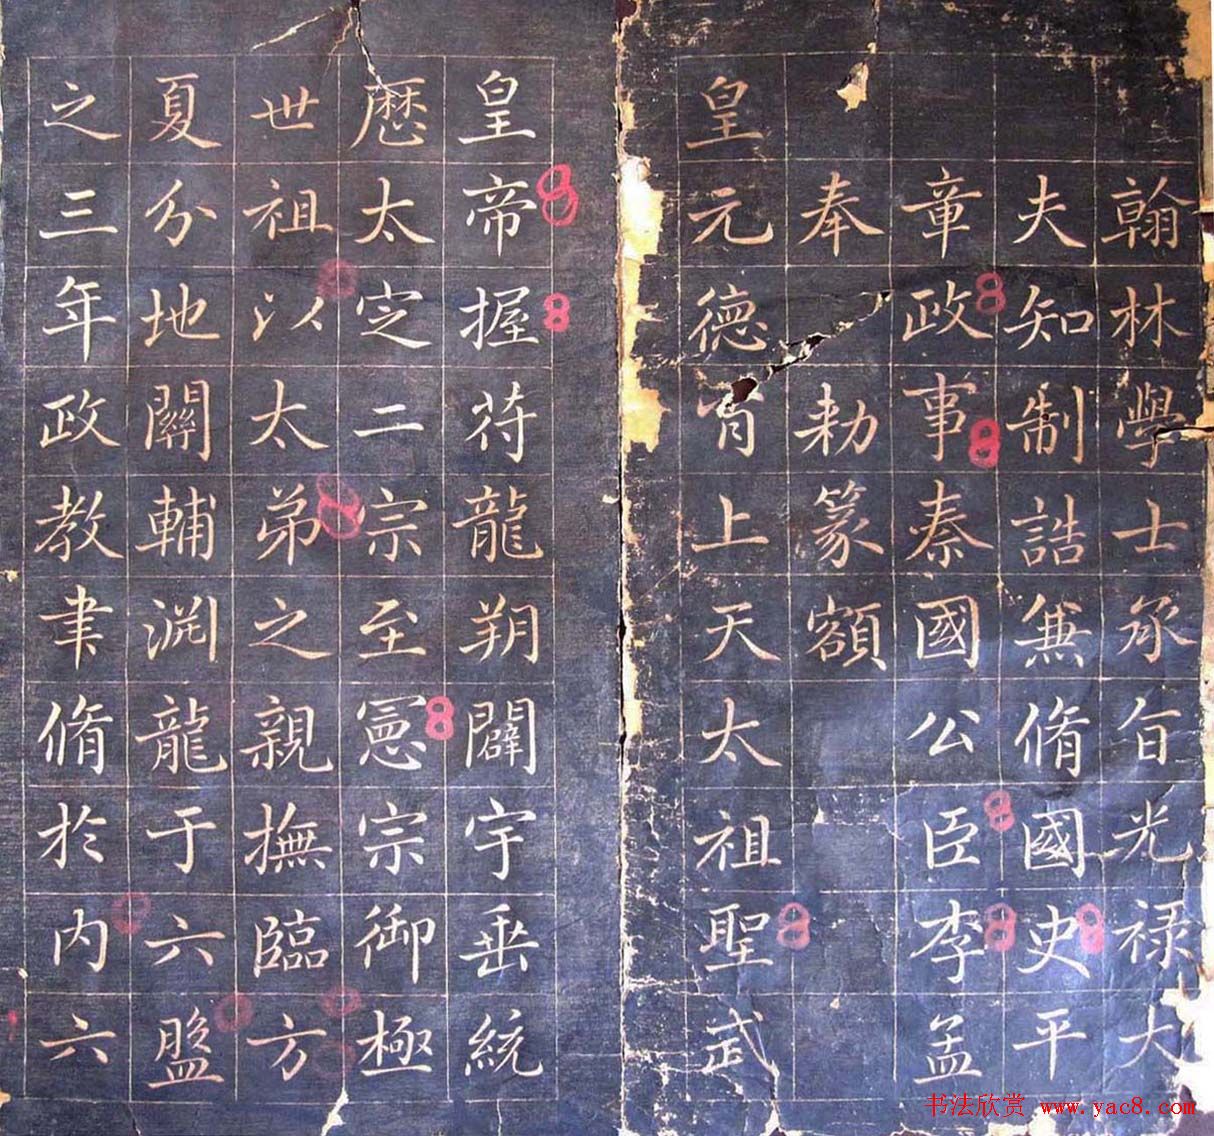 翰林學士承旨光禄大
夫知制誥兼脩國史平
章政事秦國公臣李孟
奉勑篆額
皇元德有上天太祖聖武
皇帝握符龍朔闢宇垂統
歷太定二宗至憲宗御極
世祖以太弟之親撫臨方
夏分地關輔渊龍于六盤
之三年政教聿脩於内六
书法欣赏 www.yac8.com